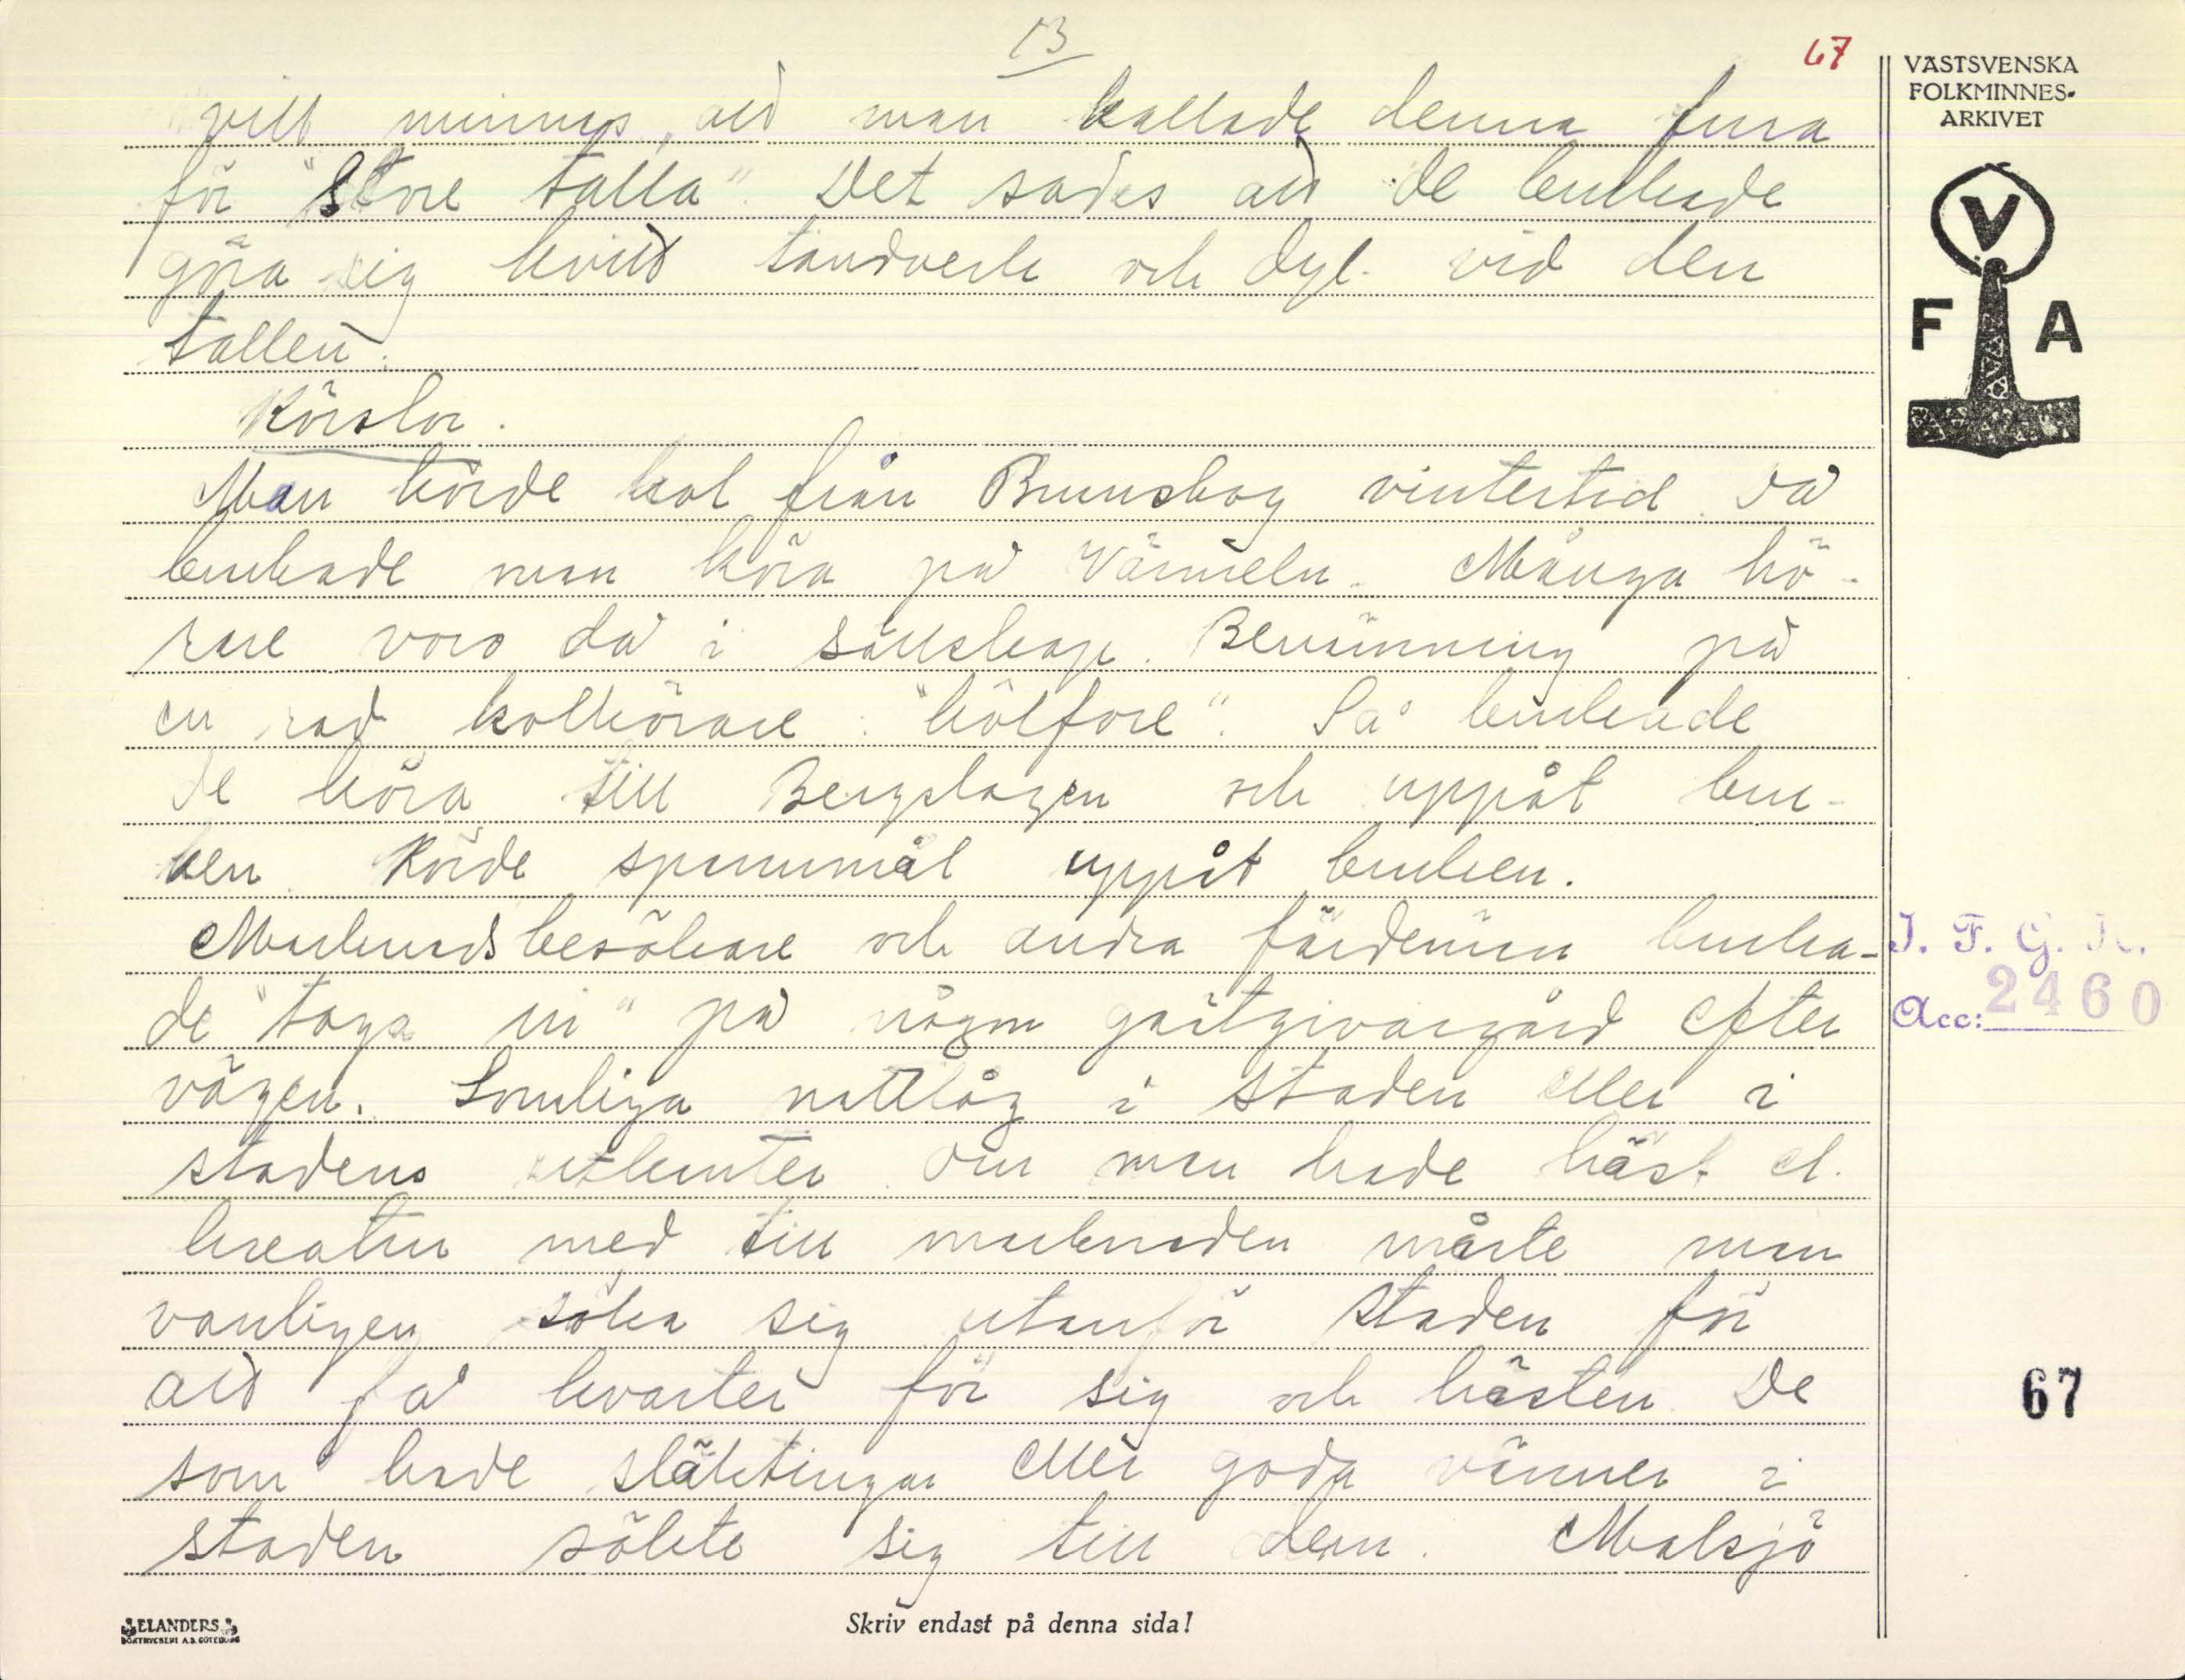 13
67
VÄSTSVENSKA
FOLKMINNES-
ARKIVET
V
F A
vill minnas, att man kallade denna fura
för "Store talla". Det sades att de brukade
göra sig kvitt tandverk och dyl. vid den
tallen.
Körslor.
Man körde kol från Brunskog vintertid. Då
brukade man köra på Värmeln. Många kö-
rare voro då i sällskap. Benämning på
en rad kolkörare: "kölfore". Så brukade
de köra till Bergslagen och uppåt bru-
ken. Körde spannmål uppåt bruken.
Marknadsbesökare och andra färdemän bruka-
de "taga in" på någon gästgivargård efter
vägen. Somliga nattlåg i staden eller i
stadens utkanter. Om man hade häst el.
kreatur med till marknaden måste man
vanligen söka sig utanför staden för
att få kvarter för sig och hästen. De
som hade släktingar eller goda vänner i
staden sökte sig till dem. Malsjö
I. F. G. H.
Acc: 2460
67
ELANDERS
BOKTRYCKERI A.B. GÖTEBORG
Skriv endast på denna sida!